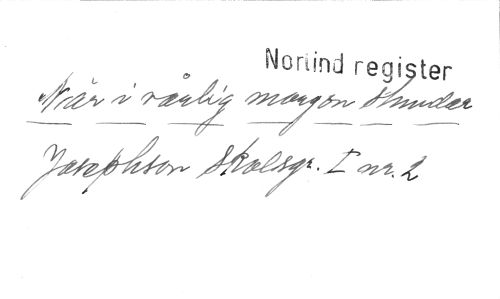 Norlind register
När i vårlig morgon stundar
Josephson Skolsgr. I nr. 2